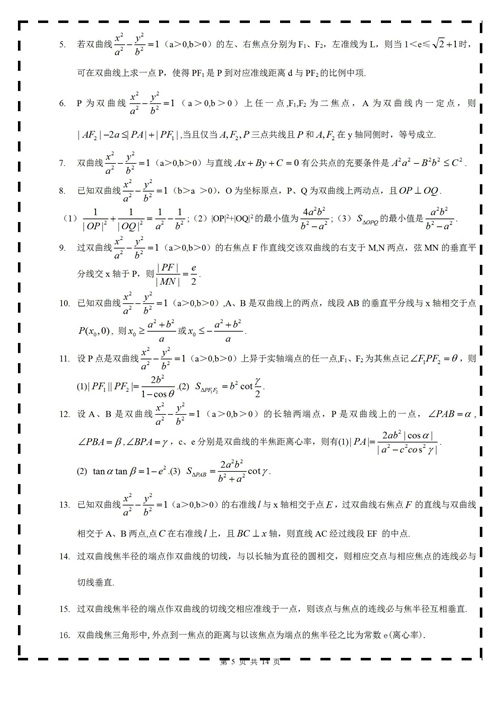 5. 若双曲线 x²/a² − y²/b² = 1（a＞0,b＞0）的左、右焦点分别为 F₁、F₂，左准线为 L，则当 1＜e≤ √2+1 时，
可在双曲线上求一点 P，使得 PF₁ 是 P 到对应准线距离 d 与 PF₂ 的比例中项.
6. P 为双曲线 x²/a² − y²/b² = 1（a＞0,b＞0）上任一点,F₁,F₂ 为二焦点，A 为双曲线内一定点，则
| AF₂ | −2a ≤| PA | + | PF₁ | ,当且仅当 A, F₂, P 三点共线且 P 和 A, F₂ 在 y 轴同侧时，等号成立.
7. 双曲线 x²/a² − y²/b² = 1（a＞0,b＞0）与直线 Ax + By + C = 0 有公共点的充要条件是 A²a² − B²b² ≤ C².
8. 已知双曲线 x²/a² − y²/b² = 1（b＞a ＞0），O 为坐标原点，P、Q 为双曲线上两动点，且 OP ⊥ OQ .
（1） 1/|OP|² + 1/|OQ|² = 1/a² − 1/b² ;（2）|OP|²+|OQ|² 的最小值为 4a²b²/(b² − a²) ;（3）S△OPQ 的最小值是 a²b²/(b² − a²) .
9. 过双曲线 x²/a² − y²/b² = 1（a＞0,b＞0）的右焦点 F 作直线交该双曲线的右支于 M,N 两点，弦 MN 的垂直平
分线交 x 轴于 P，则 | PF |/| MN | = e/2 .
10. 已知双曲线 x²/a² − y²/b² = 1（a＞0,b＞0）,A、B 是双曲线上的两点，线段 AB 的垂直平分线与 x 轴相交于点
P(x₀,0) , 则 x₀ ≥ (a² + b²)/a 或 x₀ ≤ −(a² + b²)/a .
11. 设 P 点是双曲线 x²/a² − y²/b² = 1（a＞0,b＞0）上异于实轴端点的任一点,F₁、F₂ 为其焦点记 ∠F₁PF₂ = θ ，则
(1) | PF₁ || PF₂ |= 2b²/(1 − cos θ) .(2) S△PF₁F₂ = b² cot γ/2 .
12. 设 A、B 是双曲线 x²/a² − y²/b² = 1（a＞0,b＞0）的长轴两端点，P 是双曲线上的一点，∠PAB = α ,
∠PBA = β ,∠BPA = γ ，c、e 分别是双曲线的半焦距离心率，则有(1) | PA |= 2ab² | cos α | / | a² − c²cos² γ | .
(2) tan α tan β = 1− e² .(3) S△PAB = 2a²b²/(b² + a²) cot γ .
13. 已知双曲线 x²/a² − y²/b² = 1（a＞0,b＞0）的右准线 l 与 x 轴相交于点 E ，过双曲线右焦点 F 的直线与双曲线
相交于 A、B 两点,点 C 在右准线 l 上，且 BC ⊥ x 轴，则直线 AC 经过线段 EF 的中点.
14. 过双曲线焦半径的端点作双曲线的切线，与以长轴为直径的圆相交，则相应交点与相应焦点的连线必与
切线垂直.
15. 过双曲线焦半径的端点作双曲线的切线交相应准线于一点，则该点与焦点的连线必与焦半径互相垂直.
16. 双曲线焦三角形中,外点到一焦点的距离与以该焦点为端点的焦半径之比为常数 e(离心率).
第 5 页 共 14 页